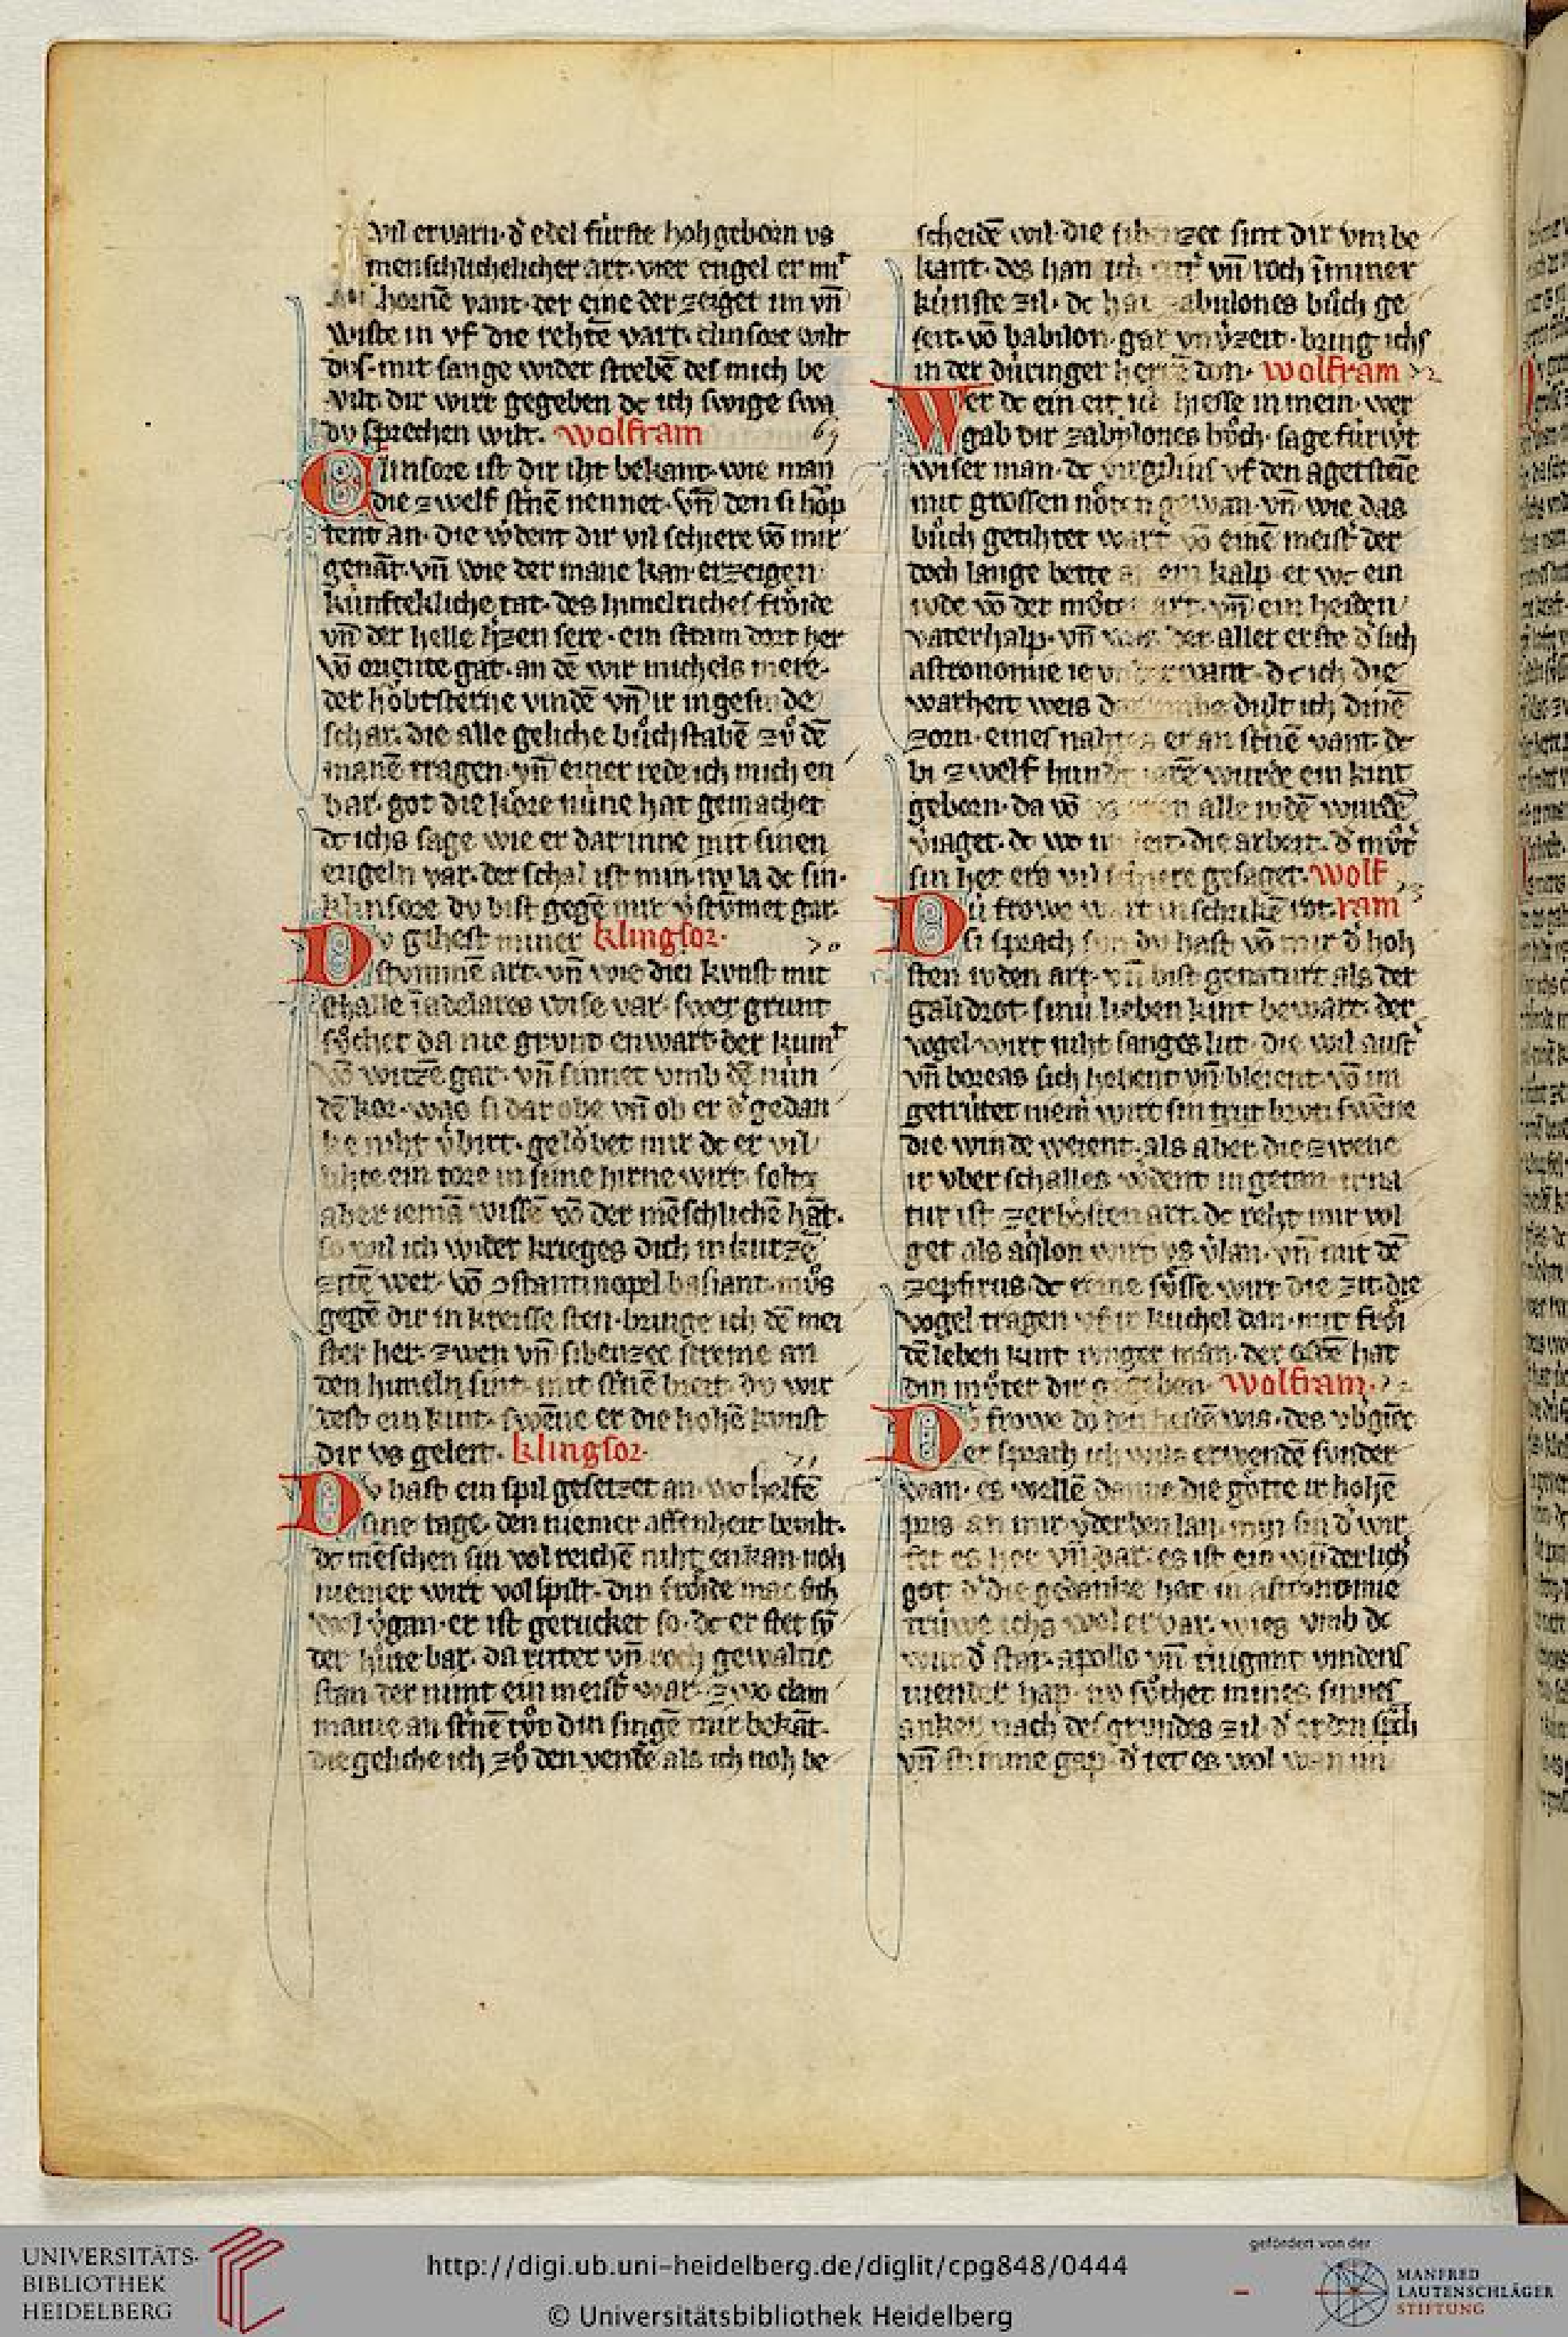 vil ervarn · d̾ edel fúrste hohgeborn vs
menschlichelicher art · vier engel er mit
hornē vant · der eine der zeiget im vn̄
wiste in vf die rehtē vart · clinsore wilt
dvs · mit sange wider strebē des mich be
vilt · dir wirt gegeben dc ich swige swa
dv sprechen wilt · wolfram
Clinsore ist dir iht bekant · wie man
die zwelf st̾nē nennet · vn̄ den si hǒp
tent an · die w̾dent dir vil schiere vō mir
genāt · vn̄ wie der mane kan erzeigen
kúnftekliche tat · des himelriches frǒide
vn̄ der helle hizen sere · ein stram dort her
vō oriente gat · an dē wir michels mere
der hǒbtsterne vindē vn̄ ir ingesinde
schar · die alle geliche bůchstabē zů dē
manē tragen · vn̄ einer rede ich mich en
bar · got die kőre núne hat gemachet
dc ichs sage wie er dar inne mit sinen
engeln var · der schal ist min · nv la dc sin ·
klinsore dv bist gegē mir v̾stvmet gar ·
Dv gihest miner klingsor ·
stvmmē art · vn̄ wie din kvnst mit
schalle ī adelares wise var · swer grunt
sůchet da nie grunt enwart · der kumt
vō witzē gar · vn̄ sinnet vmb dē nún
dē kor · was si dar obe vn̄ ob er d̾ gedan
ke niht v̾birt · gelǒbet mir dc er vil
lihte ein tore in sime hirne wirt · solte
aber iemā wissē vō der mēschlichē hāt ·
so wil ich wider krieges dich in kurzē
zitē wer · vō ɔstantinopel basiant · můs
gegē dir in kreisse sten · bringe ich dē mei
ster her · zwen vn̄ sibenzec streime an
den himeln sint · mit st̾nē breit · dv wir
dest ein kint · swēne er die hohē kunst
dir vs geleit · klingsor ·
Dv hast ein spil gesetzet an · wo helfē
dine tage · den niemer affenheit bevilt ·
dc mēschen sin volreichē niht enkan noh
niemer wirt volspilt · din frǒide mac sich
wol v̾gan · er ist gerucket so · dc er stet sv̄
der hůte bar · da ritter vn̄ roch gewaltic
stan der nimt ein meist̾ war · zwo dam
manie an st̾nē tǒr din singē mir bekāt ·
die geliche ich zů den vendē als ich noh be
scheidē wil · die sibenzec sint dir vmbe
kant · des han ich vn̄ roch īmmer
kúnste zil · dc hat zabulones bůch ge
seit · vō babilon · gar vnv̾zeit · bring ichs
in der dúringer herrē don · wolfram
Wer dc ein eit ich hiesse in mein · wer
gab dir zabylones bůch · sage fúrwt
wiser man · dc virgilius vf den agetsteīe
mit grossen nőten gewan · vn̄ wie das
bůch getihtet wart vō einē meist̾ der
doch lange bette an ein kalp · er wc ein
iude vō der můter art · vn̄ ein heiden
vaterhalp · vn̄ was der aller erste d̾ sich
astronomie ie vnderwant · dc ich die
warheit weis dult ich dinē
zorn · eines nahtes er an st̾nē vant · dc
bi zwelf hundert iarē wurde ein kint
geborn · da vō alle iudē wurdē
v̾iaget · dc wc im leit · die arbeit · d̾ můt̾
sin her ers vil schiere gesaget · wolf
Dú frowe wart in schrikē rot · ram
si sprach sun dv hast vō mir d̾ hoh
sten iuden art · vn̄ bist genaturt als der
galidrot · sinú lieben kint bewart · der
vogel wirt niht sanges lut · die wil aust̾
vn̄ boreas sich hebent vn̄ bleient · vō im
getrútet niem̄ wirt sin trut brut swēne
die winde weient · als aber die zwene
ir vber schalles w̾dent ingetan · ir na
tur ist zer bősten art · dc reht mir vol
get als aqilon wirt vs v̾lan · vn̄ mit dē
zepfirus · dc reine sůsse wirt die zit · die
vogel tragen vf ir kuchel dan · mit frői
dē leben kint iunger man · der gebē hat
din můter dir gegeben · Wolfram ·
Dv frowe dv den heiden was · des v̾bgiēc
Der sprach ich wils erwendē sunder
wan · es wellē danne die gőtte ir hohē
pris an mir v̾derben lan · min sin d̾ wir
fet es her vn̄ dar · es ist ein wūderlich
got d̾ die gedanke hat · in astronomie
trúwe ichs wol ervar · wies vmb dc
wund̾ stat · apollo vn̄ t̾vigant vindens
niender hap · nv sůchet mines sinnes
anker nach des grundes zil · d̾ erden sich
vn̄ stimme gap · d̾ tet es wol wan im
UNIVERSITÄTS-
BIBLIOTHEK
HEIDELBERG
http://digi.ub.uni-heidelberg.de/diglit/cpg848/0444
© Universitätsbibliothek Heidelberg
gefördert von der
MANFRED
LAUTENSCHLÄGER
STIFTUNG